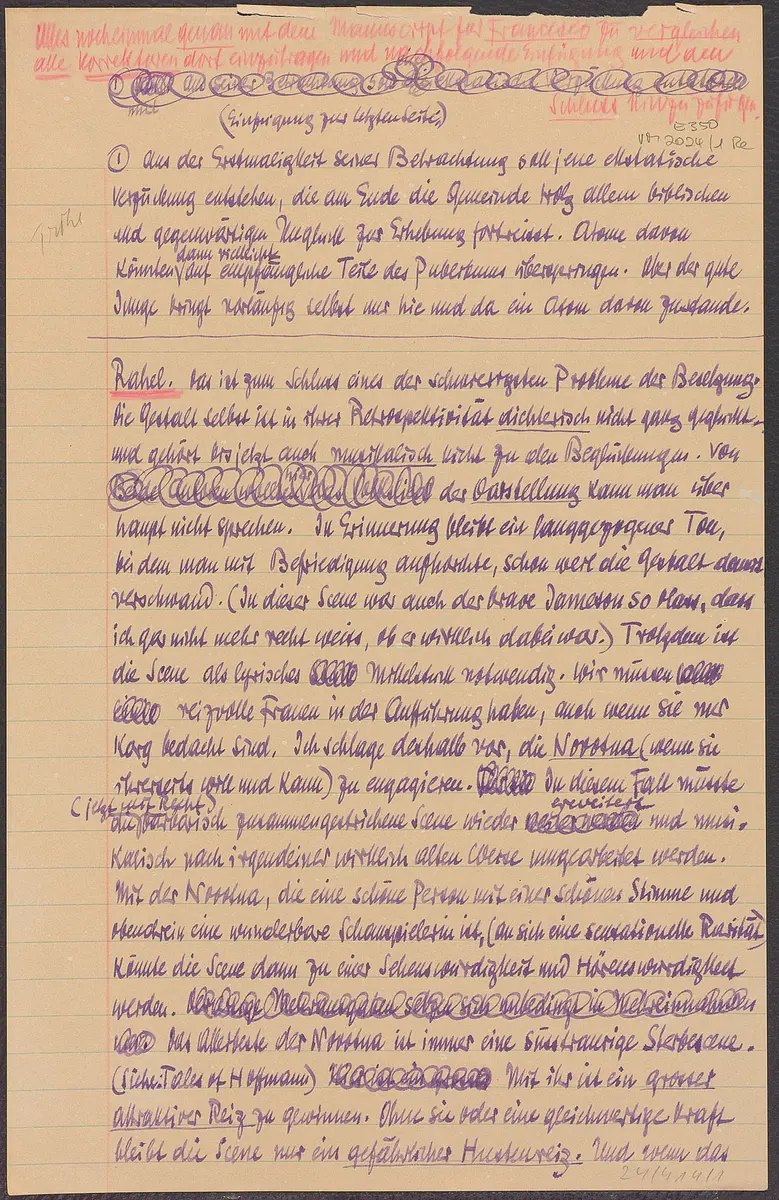 Alles nocheinmal genau mit dem Manuscript für Francesco zu vergleichen
alle Korrekturen dort einzufragen und nachfolgende Einfügung und den
Schluss hinzuzufügen.
mit
(Einfügung zur letzten Seite)
E350
① Aus der Erstmaligkeit seiner Betrachtung soll jene ekstatische
Verzückung entstehen, die am Ende die Gemeinde trotz allem biblischen
und gegenwärtigen Unglück zur Erhebung fortreisst. Atome davon
dann vielleicht
könnten auf empfängliche Teile des Publikums überspringen. Aber der gute
Junge bringt vorläufig selbst nur hie und da ein Atom davon zustande.
Rahel. Das ist zum Schluss eines der schwierigsten Probleme der Besetzung.
Die Gestalt selbst ist in ihrer Retrospektivität dichterisch nicht ganz geglückt
und gehört bis jetzt auch musikalisch nicht zu den Beglückungen. Von
der Darstellung kann man über
haupt nicht sprechen. In Erinnerung bleibt ein langgezogener Ton,
bei dem man mit Befriedigung aufhorchte, schon weil die Gestalt danach
verschwand. (In dieser Scene war auch der brave Jameson so blass, dass
ich gar nicht mehr recht weiss, ob er wirklich dabei war.) Trotzdem ist
die Scene als lyrisches Mittelstück notwendig. Wir müssen
reizvolle Frauen in der Aufführung haben, auch wenn sie nur
karg bedacht sind. Ich schlage deshalb vor, die Novotna (wenn sie
ihrerseits will und kann) zu engagieren. In diesem Fall müsste
(jetzt mit Recht)
die barbarisch zusammengestrichene Scene wieder erweitert und musi-
kalisch nach irgendeiner wirklich alten Weise umgearbeitet werden.
Mit der Novotna, die eine schöne Person mit einer schönen Stimme und
obendrein eine wunderbare Schauspielerin ist, (an sich eine sensationelle Rarität)
könnte die Scene dann zu einer Sehenswürdigkeit und Hörenswürdigkeit
werden. Das allerbeste der Novotna ist immer eine süsstraurige Sterbescene.
(Siehe: Tales of Hoffmann) Mit ihr ist ein grosser
attraktiver Reiz zu gewinnen. Ohne sie oder eine gleichwertige Kraft
bleibt die Scene nur ein gefährlicher Hustenreiz. Und wenn das
24/4141/1